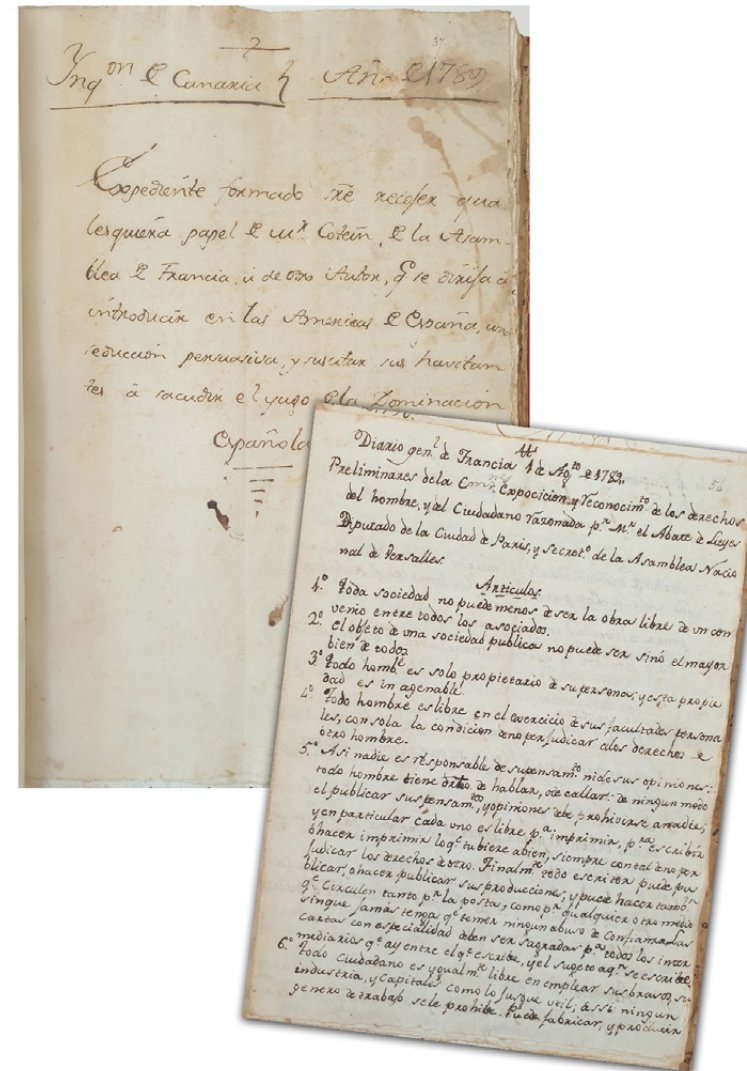 37
Ynq.on de Canaria Año de 1789
Expediente formado sre recojer qua
lesquiera papel de Mr. Cotein, de la Asam-
blea de Francia, ù de otro Autor, q.e se dirija à
introducir en las Americas de España, una
seduccion persuasiva, y suscitar sus havitan
tes à sacudir el yugo de la Dominacion
Española
Diario gen.l de Francia 1 de Ag.to de 1789.
56
Preliminares dela Exposicion, y reconocim.to de los derechos
del hombre, y del Ciudadano razonada p.r M.r el Abate de Sieyes
Diputado de la Ciudad de Paris, y secret.o de la Asamblea Nacio
nal de Versalles.
Articulos.
1.º Toda sociedad no puede menos de ser la obra libre de un con
venio entre todos los asociados.
2.º El objeto de una sociedad publica no puede ser sinó el mayor
bien de todos
3.º Todo homb.e es solo propietario de su persona; y esta propie
dad es inagenable.
4.º Todo hombre es libre en el exercicio de sus facultades persona
les, con sola la condicion de no perjudicar alos derechos de
otro hombre.
5.º Asi nadie es responsable de su pensam.to ni de sus opiniones:
todo hombre tiene dro. de hablar, ó de callar: de ningun modo
el publicar sus pensam.tos, y opiniones debe prohivirse anadie;
y en particular cada uno es libre p.a imprimir, p.a escribir
ó hacer imprimir loq.e tubiere abien, siempre con tal de no per
judicar los derechos de otro. Finalm.te todo escritor puede pu
blicar, ó hacer publicar sus producciones, y puede hacer tamb.n
q.e circulen tanto p.r la posta, como p.r qualquier otro medio
sin que jamás tenga q.e temer ningun abuso de confianza. Las
cartas con especialidad deben ser sagradas p.a todos los inter
mediarios q.e ay entre el q.e escribe, y el sugeto aq.n se escribe.
6.º Todo Ciudadano es ygualm.te libre en emplear sus brazos, su
industria, y Capitales como lo jusgue util; assi ningun
genero de trabajo se le prohibe. Puede fabricar, y producir